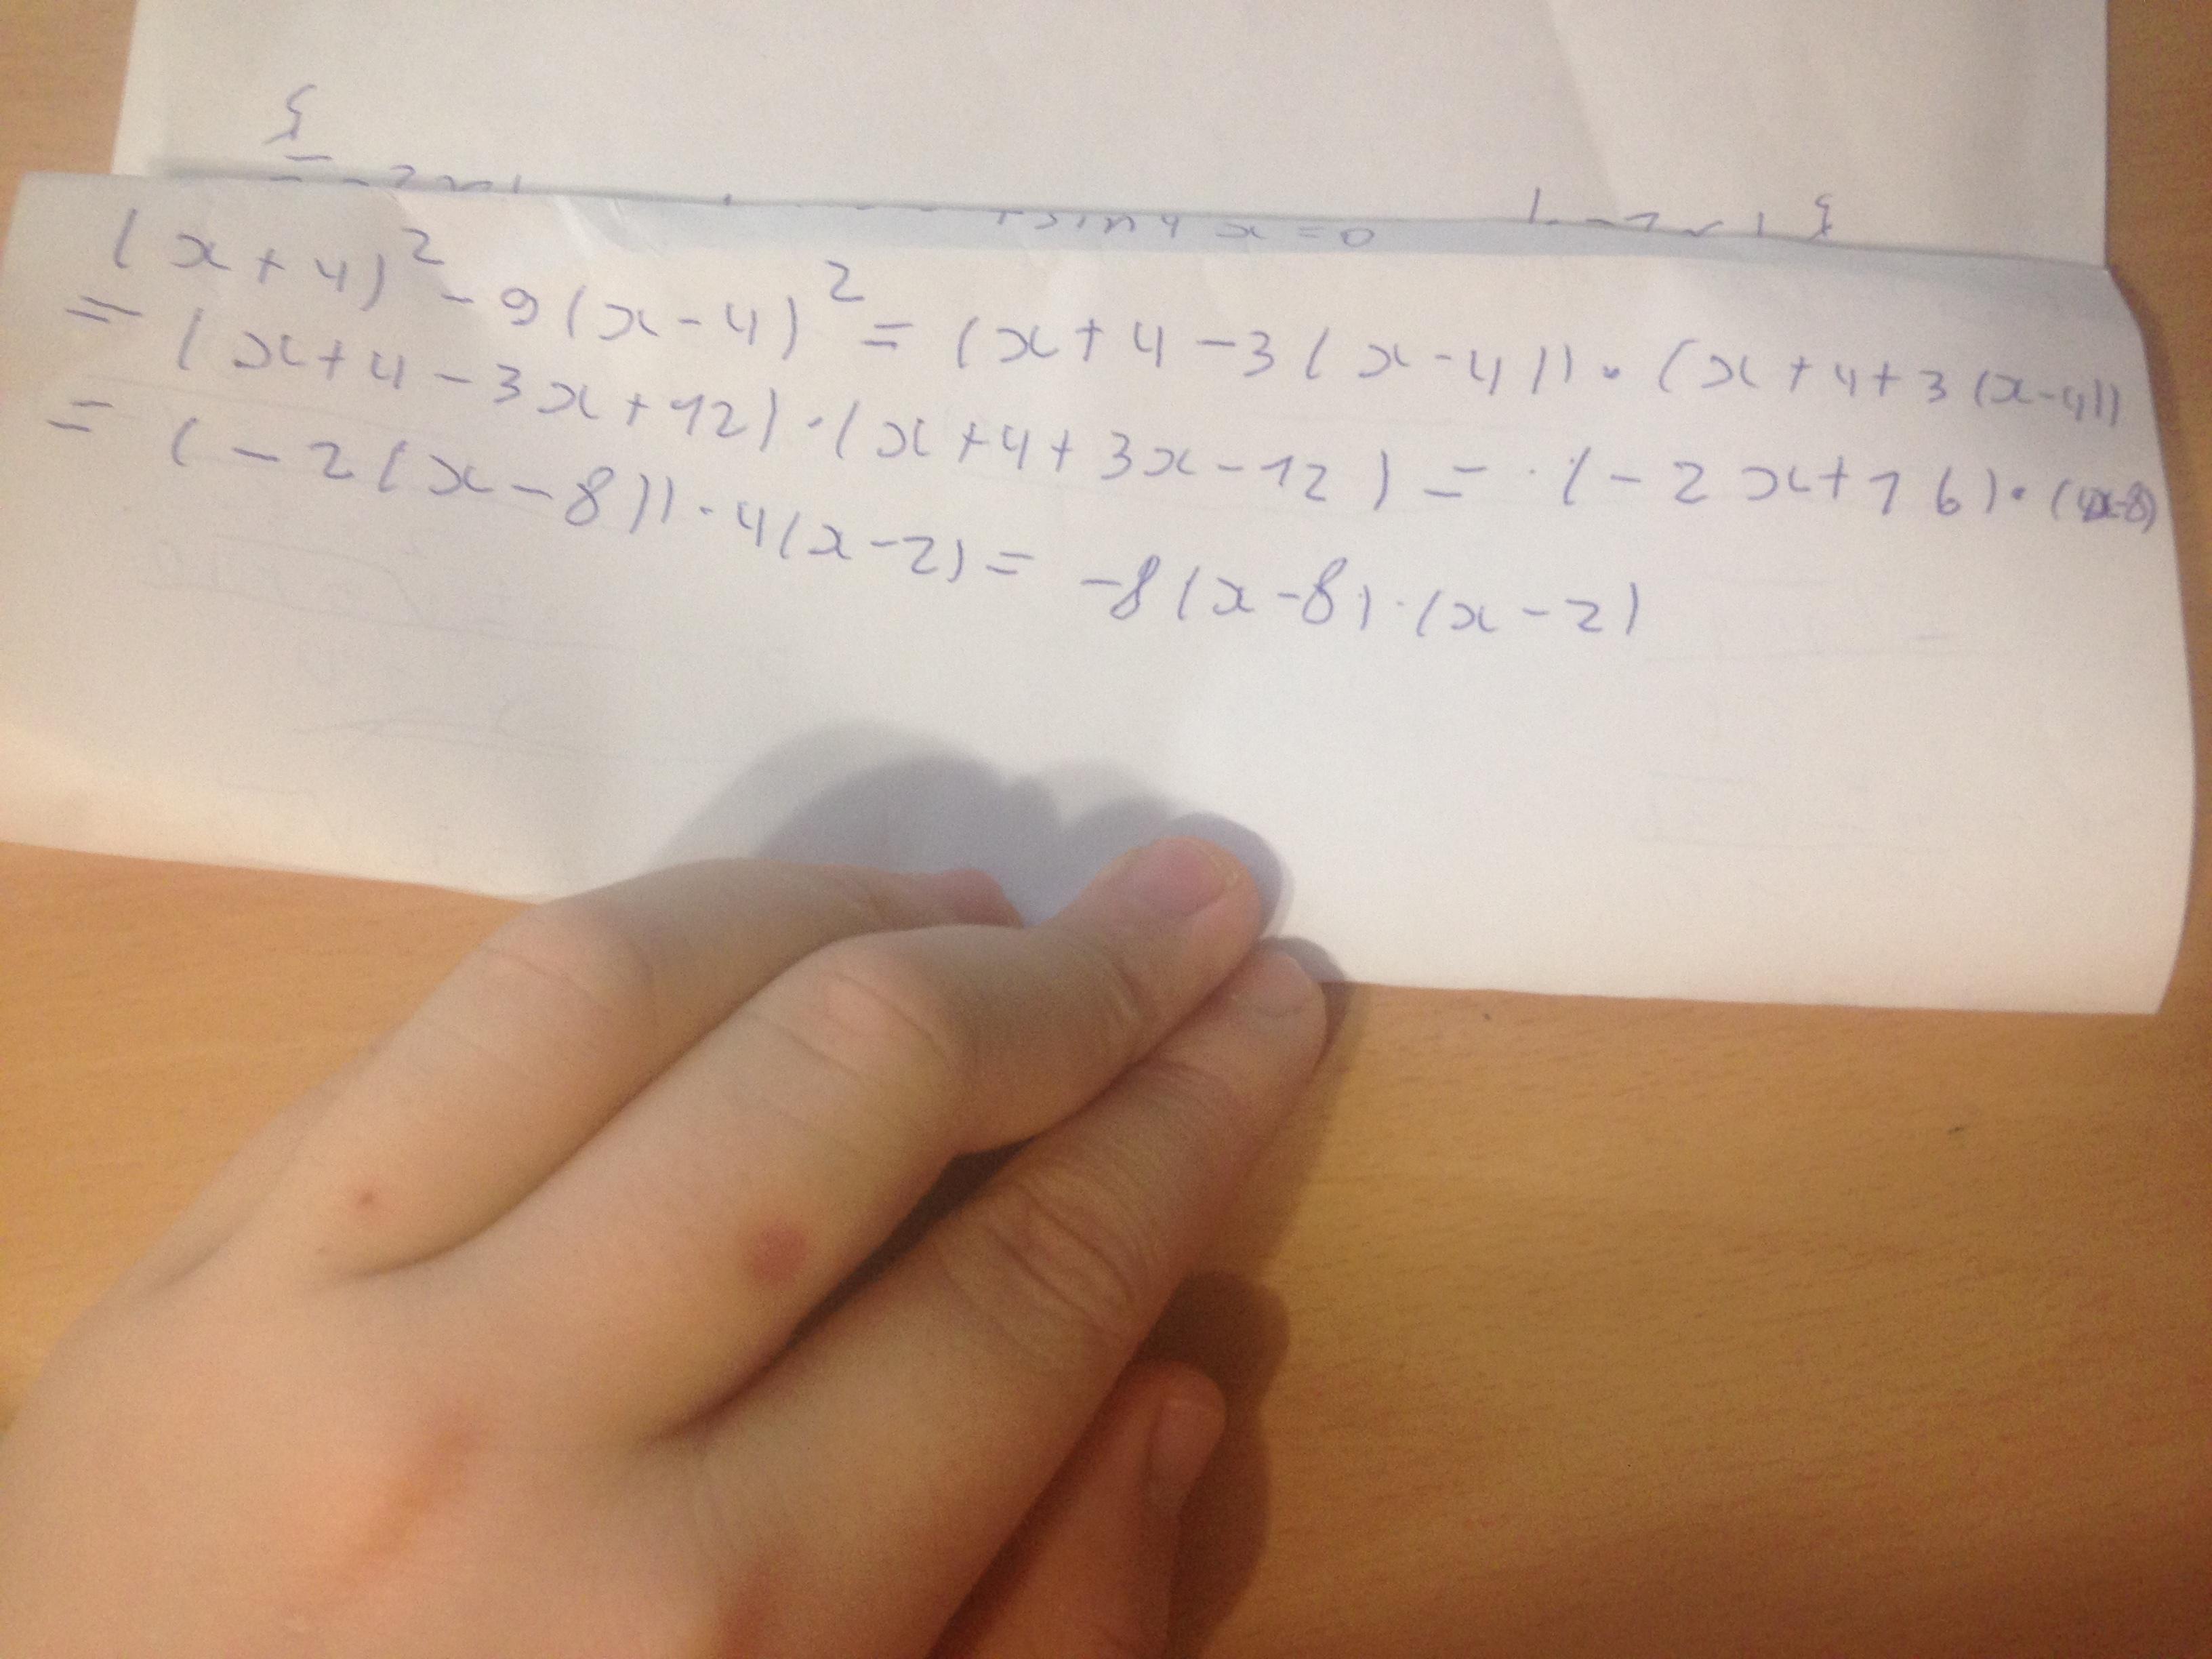 + sin 4 x = 0
(x+4)² - 9(x-4)² = (x+4-3(x-4))·(x+4+3(x-4))
= (x+4-3x+12)·(x+4+3x-12) = ·(-2x+16)·(4x-8)
= (-2(x-8))·4(x-2) = -8(x-8)·(x-2)